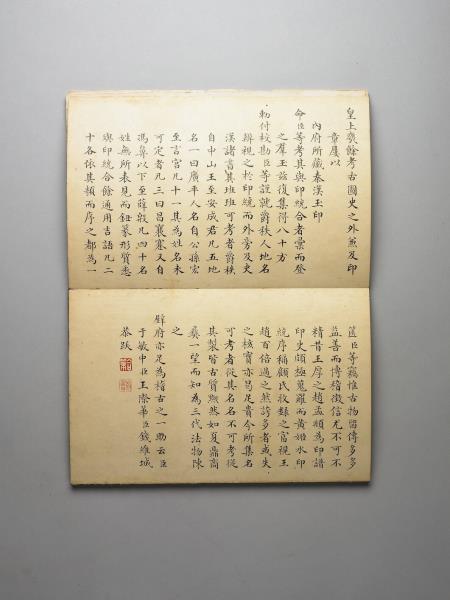 皇上幾餘考古圖史之外兼及印
章爰以
內府所藏秦漢玉印
命臣等考其與印統合者彙而登
之羣玉茲復集得八十方
勅付校勘臣等謹就爵秩人地名
辨視之於印統而外旁及史
漢諸書其班班可考者爵秩
自中山王至安成君凡五地
名一曰廣平人名自公孫宏
至言官凡十一其為姓名未
可定者凡三曰呂襄騫又自
馮鼻以下至薛戟凡四十名
姓無所表見而鈕篆形質悉
與印統合餘通用吉語凡二
十各依其類而序之都為一
篋臣等竊惟古物留傳多多
益善而博稽徵信尤不可不
精昔王厚之趙孟頫為印譜
印史頗極蒐羅而黃姬水印
統序稱顧氏收錄之富視王
趙百倍過之然誇多者或失
之核實亦曷足貴今所集名
可考者從其名名不可考從
其製皆古質黝然如夏鼎商
彝一望而知為三代法物陳
之
璧府亦足為稽古之一助云臣
于敏中臣王際華臣錢維城
恭跋